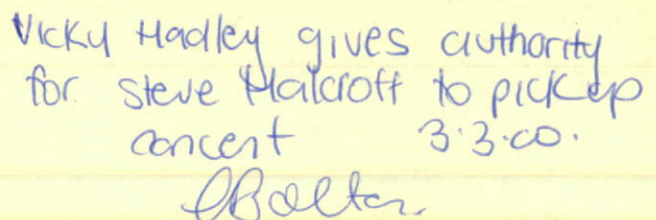 Vicky Hadley gives authority
for Steve Halcroft to pick up
concert 3.3.00.